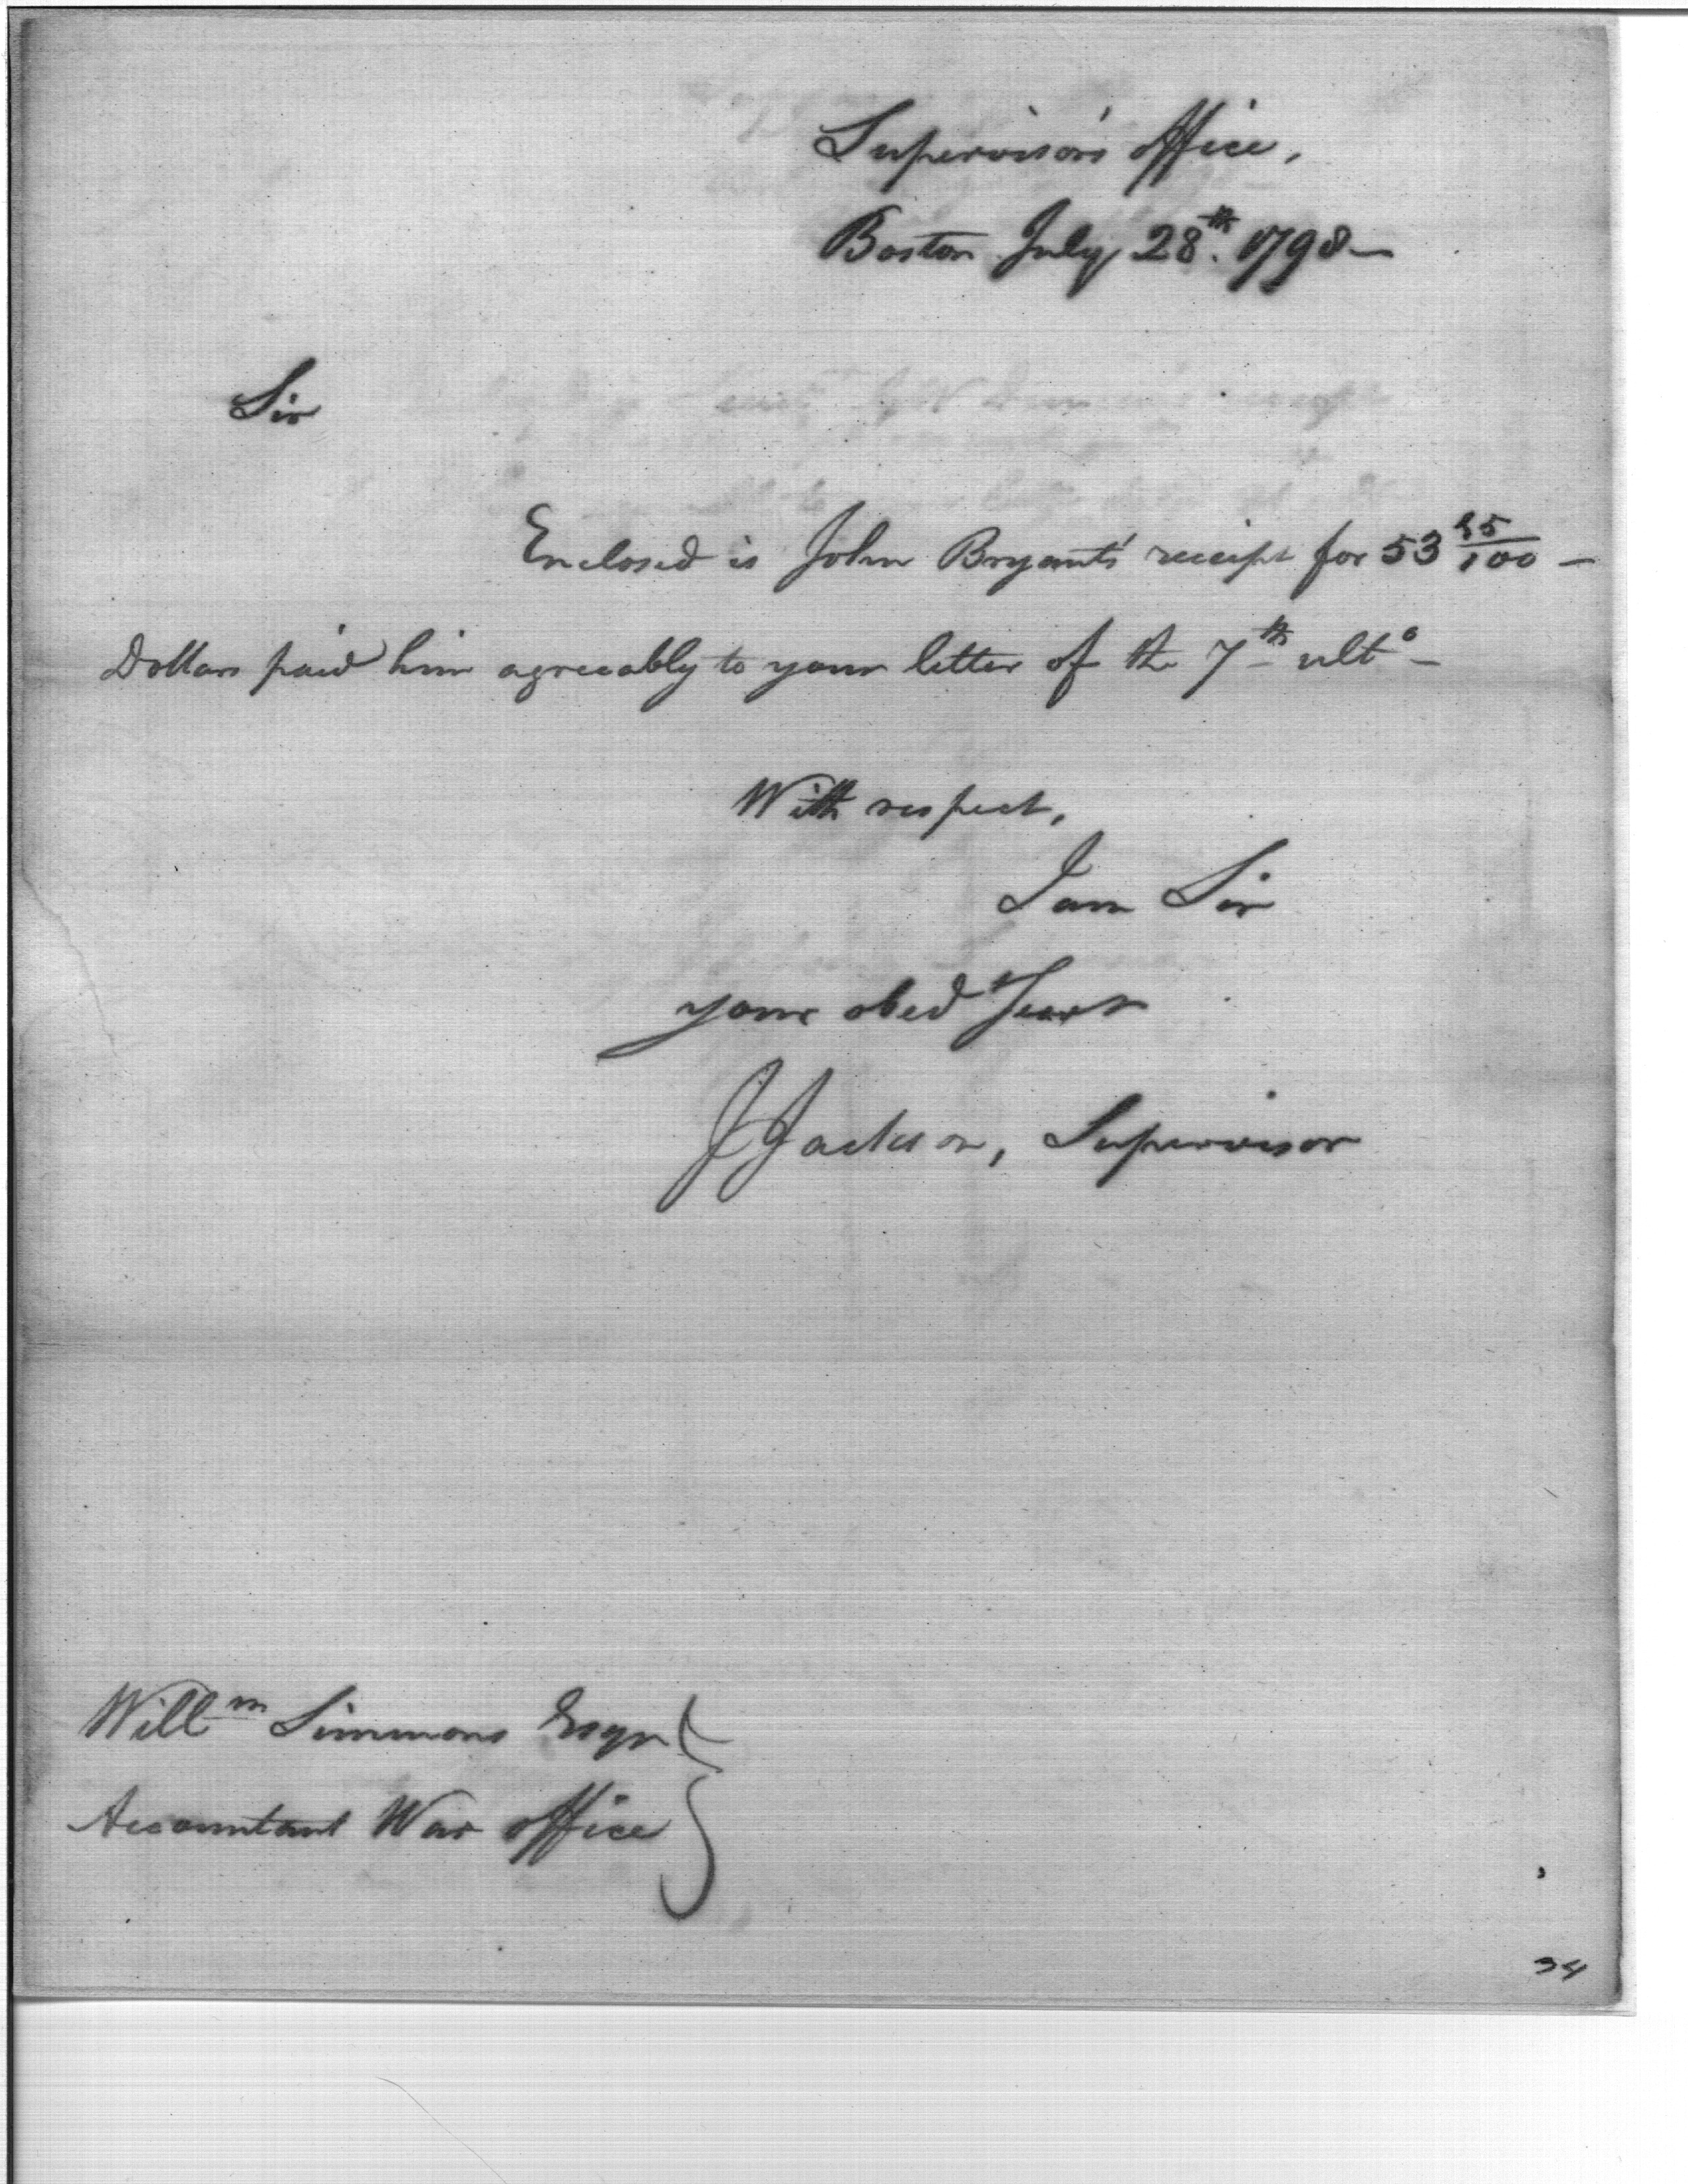 Supervisor's office,
Boston July 28th. 1798—
Sir
Enclosed is John Bryant's receipt for 53 /100 —
Dollars paid him agreeably to your letter of the 7th ulto —
With respect,
I am Sir
your obedt Servt
J Jackson, Supervisor
Willm Simmons Esqr
Accountant War office
34